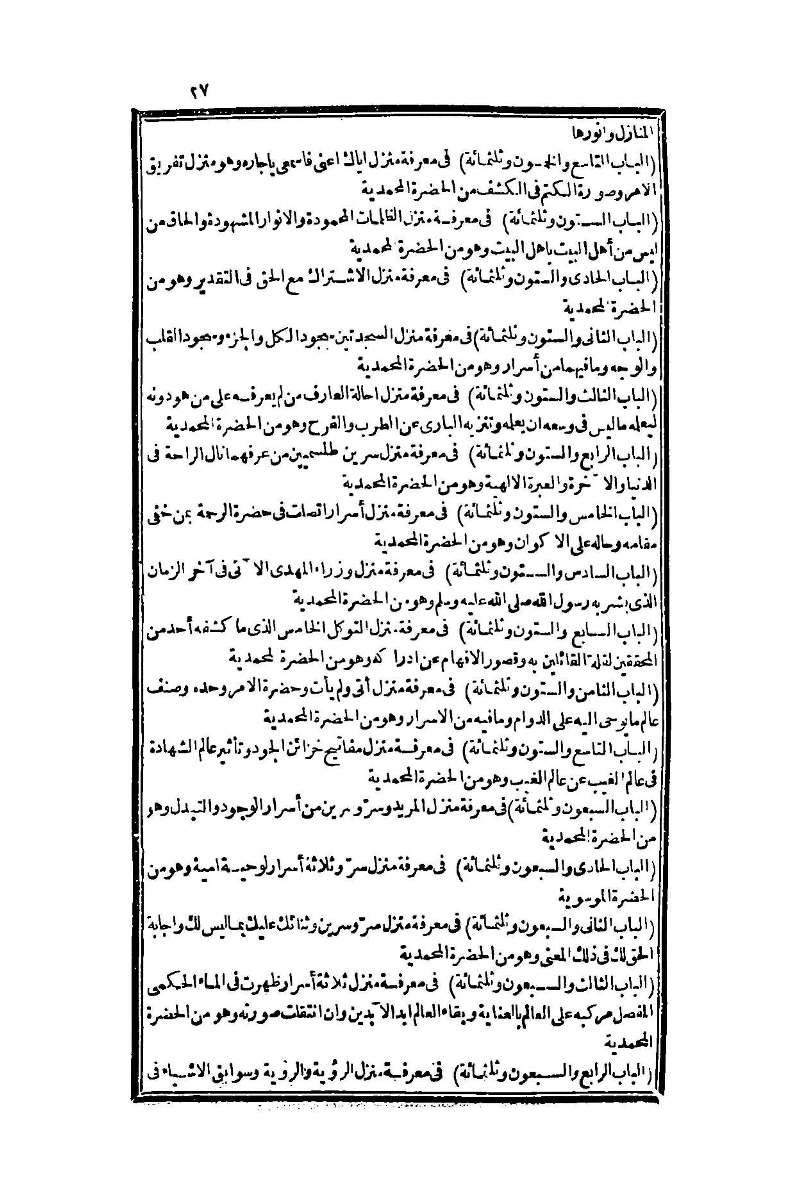 ٢٧
المنازل وانورها
(الباب التاسع والخمسون وثلثمائة) فى معرفة منزل اياك اعنى فاسمعى ياجاره وهو منزل تفريق
الامر وصورة الكتم فى الكشف من الحضرة المحمدية
(الباب الستون وثلثمائة) فى معرفة منزل الظلمات المحمودة والانوار المشهودة والحاق من
ليس من أهل البيت باهل البيت وهو من الحضرة المحمدية
(الباب الحادى والستون وثلثمائة) فى معرفة منزل الاشتراك مع الحق فى التقدير وهو من
الحضرة المحمدية
(الباب الثانى والستون وثلثمائة) فى معرفة منزل السجدتين سجود الكل والجزء وسجود القلب
والوجه وما فيهما من أسرار وهو من الحضرة المحمدية
(الباب الثالث والستون وثلثمائة) فى معرفة منزل احالة العارف من لم يعرفه على من هو دونه
ليعلمه ما ليس فى وسعه ان يعلمه وتنزيه البارى عن الطرب والفرح وهو من الحضرة المحمدية
(الباب الرابع والستون وثلثمائة) فى معرفة منزل سرين طلسميين من عرفهما نال الراحة فى
الدنيا والآخرة والغيرة الالهية وهو من الحضرة المحمدية
(الباب الخامس والستون وثلثمائة) فى معرفة منزل أسرار اتصلت فى حضرة الرحمة بمن خفى
مقامه وحاله على الاكوان وهو من الحضرة المحمدية
(الباب السادس والستون وثلثمائة) فى معرفة منزل وزراء المهدى الآتى فى آخر الزمان
الذى بشر به رسول الله صلى الله عليه وسلم وهو من الحضرة المحمدية
(الباب السابع والستون وثلثمائة) فى معرفة منزل التوكل الخامس الذى ما كشفه أحد من
المحققين لقلة القائلين به وقصور الافهام عن ادراكه وهو من الحضرة المحمدية
(الباب الثامن والستون وثلثمائة) فى معرفة منزل أتى ولم يأت وحضرة الامر وحده وصنف
عالم ما يوحى اليه على الدوام وما فيه من الاسرار وهو من الحضرة المحمدية
(الباب التاسع والستون وثلثمائة) فى معرفة منزل مفاتيح خزائن الجود وتأثير عالم الشهادة
فى عالم الغيب عن عالم الغيب وهو من الحضرة المحمدية
(الباب السبعون وثلثمائة) فى معرفة منزل المريد وسرّ وسرين من أسرار الوجود والتبدل وهو
من الحضرة المحمدية
(الباب الحادى والسبعون وثلثمائة) فى معرفة منزل سرّ وثلاثة أسرار لوحية امية وهو من
الحضرة الموسوية
(الباب الثانى والسبعون وثلثمائة) فى معرفة منزل سرّ وسرين وثنائك عليك بما ليس لك واجابة
الحق لك فى ذلك المعنى وهو من الحضرة المحمدية
(الباب الثالث والسبعون وثلثمائة) فى معرفة منزل ثلاثة أسرار ظهرت فى الماء الحكمى
المفصل مركبه على العالم بالعناية وبقاء العالم ابد الآبدين وان انتقلت صورته وهو من الحضرة
المحمدية
(الباب الرابع والسبعون وثلثمائة) فى معرفة منزل الرؤية والرؤية وسوابق الاشياء فى